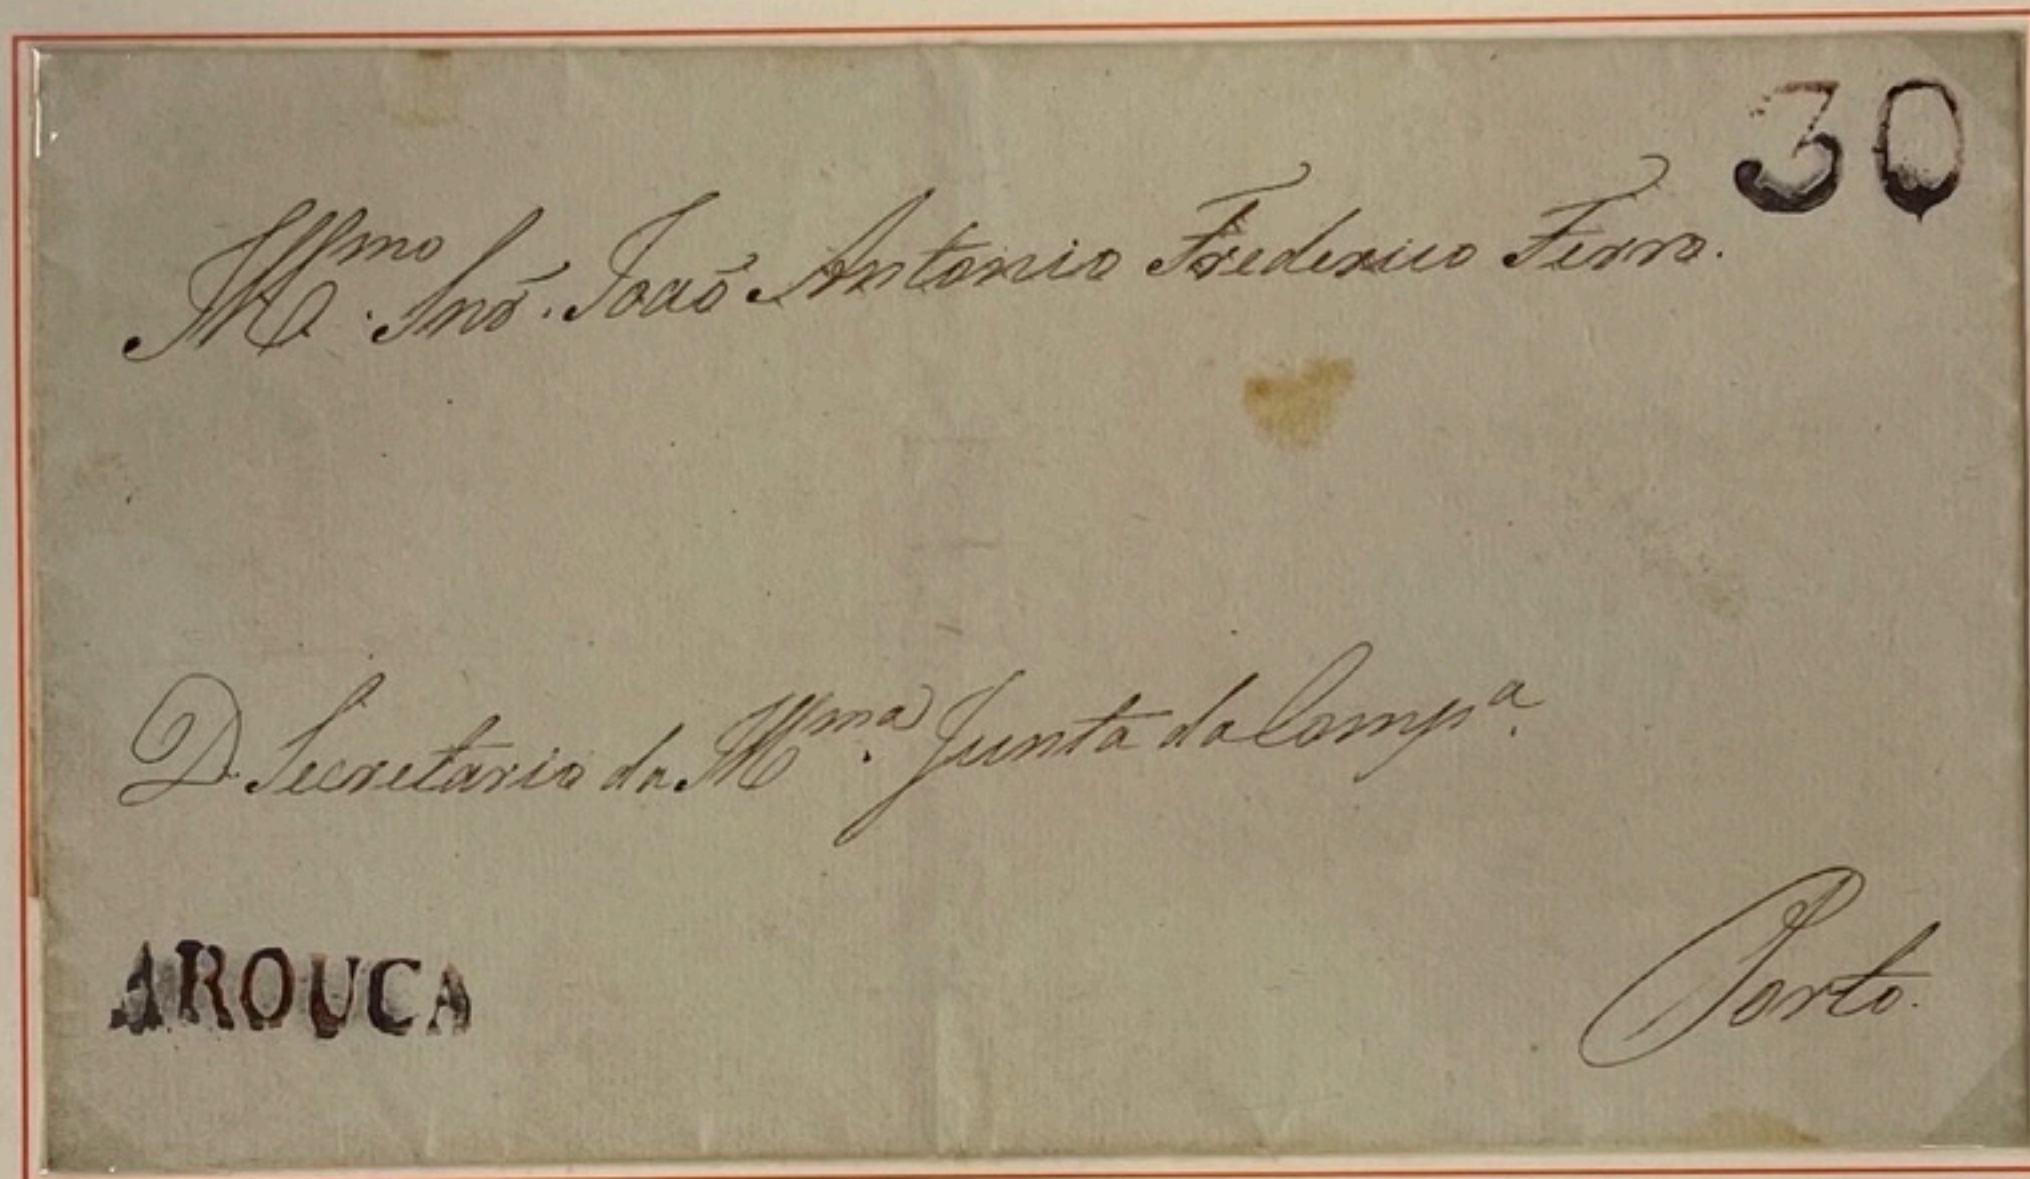 30
Illmo. Snr. João Antonio Frederico Ferro.
D. Secretario da Illma. Junta da Compa.
AROUCA
Porto.